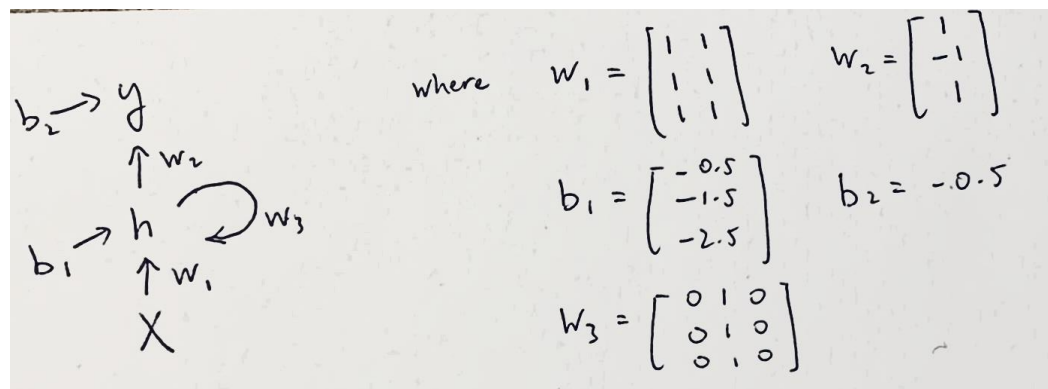 b₂ → y
↑ w₂
b₁ → h w₃
↑ w₁
X
where W₁ = [ 1 1
1 1
1 1 ]
W₂ = [ 1
-1
1 ]
b₁ = [ -0.5
-1.5
-2.5 ]
b₂ = -0.5
W₃ = [ 0 1 0
0 1 0
0 1 0 ]